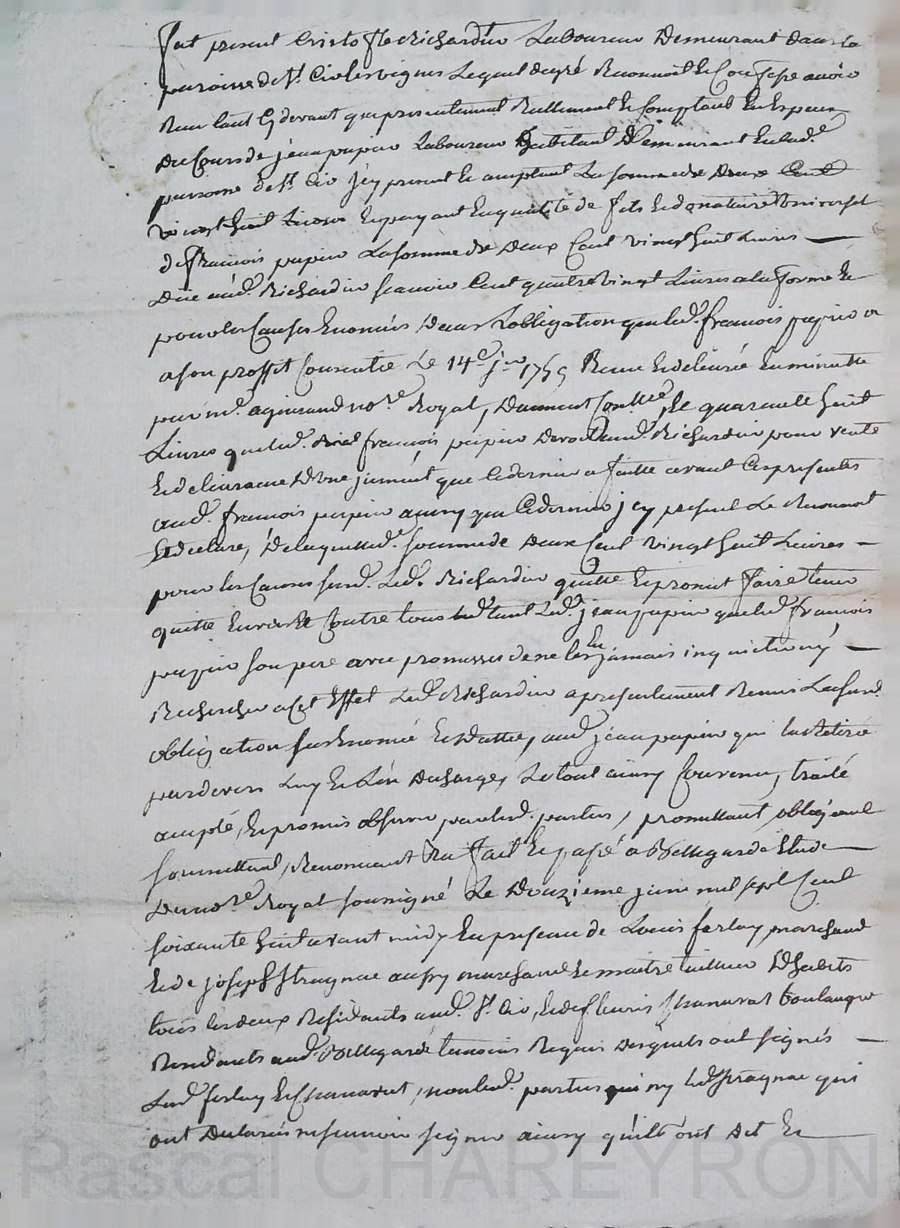 fut present Cristofle Richardin Laboureur Demeurant dans la
paroisse de St. Cir les vignes Lequel degré Reconnoit et Confesse avoir
Receu tant Cydevant que presentement Reellement et Comptant En Especes
Du Cours de jean papin Laboureur habitant Demeurant En lad.e
paroisse de St. Cir jcy present et acceptant La somme de Deux Cent
vingt huit Livres En payant En qualité de fils Et donataire universel
de françois papin La somme de Deux Cent vingt huit Livres
Due aud. Richardin scavoir Cent quatre vingt Livres a la forme et
pour les Causes Enoncées Dans L'obligation que led. françois papin a
a son proffit Consentie Le 14e jin 1755 Receue Et delivrée En minutte
par me. aginaud no.re Royal, Duement Conttée, Et quarante huit
Livres que led. françois papin devoit aud. Richardin pour vente
Et delivrance D'une jument que Ce dernier a faitte avant Ces presentes
aud. françois papin ainsy que Ce dernier jcy present Le Reconnoit
Et declare, De laquelle d. somme de Deux Cent vingt huit Livres
pour les Causes susd. Led. Richardin quitte Et promet faire tenir
quitte Envers Et Contre tous tant Led. jean papin que led. françois
papin son pere avec promesses de ne les En jamais inquietter ny
Rechercher a Cet Effet Led. Richardin a presentement Remis La susd.
obligation sus Enoncée Et dattée, aud. jean papin qui La Retirée
pardevers Luy Et L'En Decharge, Le tout ainsy Convenu, traité
accepté, Et promis observer par lesd. parties, promettant, obligeant
soumettant, Renonceant fait Et passé a Bellegarde Etude
Du no.re Royal soussigné Le Douzieme juin mil sept Cent
soixante huit avant midy En presence de Louis ferlay marchand
Et de joseph Stragnac aussy marchand Et maitre tailleur D'habits
tous les deux Residants aud. St. Cir, Et de fleuris Chanavat boulanger
Residants aud. Bellegarde temoins Requis Desquels ont signés
Led. ferlay Et Chanavat, non lesd. parties ny led. Stragnac qui
ont Declarés ne scavoir signer ainsy qu'ils ont Dit Et
Pascal CHAREYRON